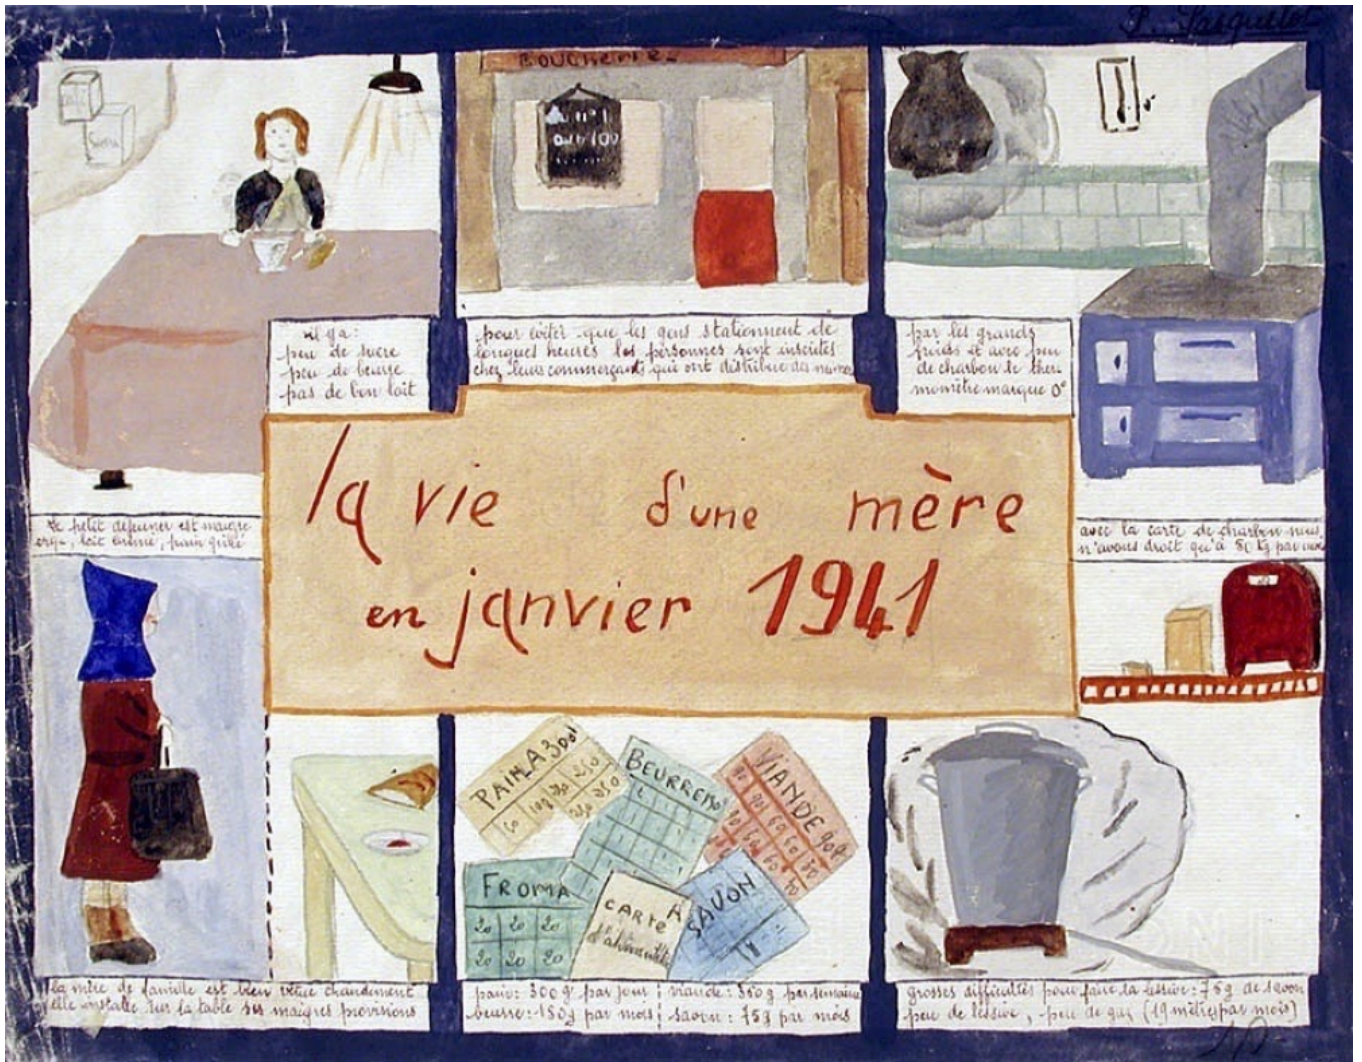 P. Pasquelot
BOUCHERIE
il y a:
peu de sucre
peu de beurre
pas de bon lait
pour éviter que les gens stationnent de
longues heures les personnes sont inscrites
chez leurs commerçants qui ont distribué des numéros
par les grands
froids et avec peu
de charbon le ther-
momètre marque 0°
la vie d'une mère
en janvier 1941
le petit déjeuner est maigre
orge, lait écrémé, pain grillé
avec la carte de charbon nous
n'avons droit qu'à 50 Kg par mois
PAIN.A 300g
BEURRE 150
VIANDE 90g
FROMA
20 20 20
20 20 20
CARTE A
d'alimentation
SAVON
la mère de famille est bien vêtue chaudement
elle installe sur la table ses maigres provisions
pain: 300g par jour ; viande: 350g par semaine
beurre: 150g par mois ; savon: 75g par mois
grosses difficultés pour faire la lessive: 75g de savon
peu de lessive, peu de gaz (19 mètres par mois)